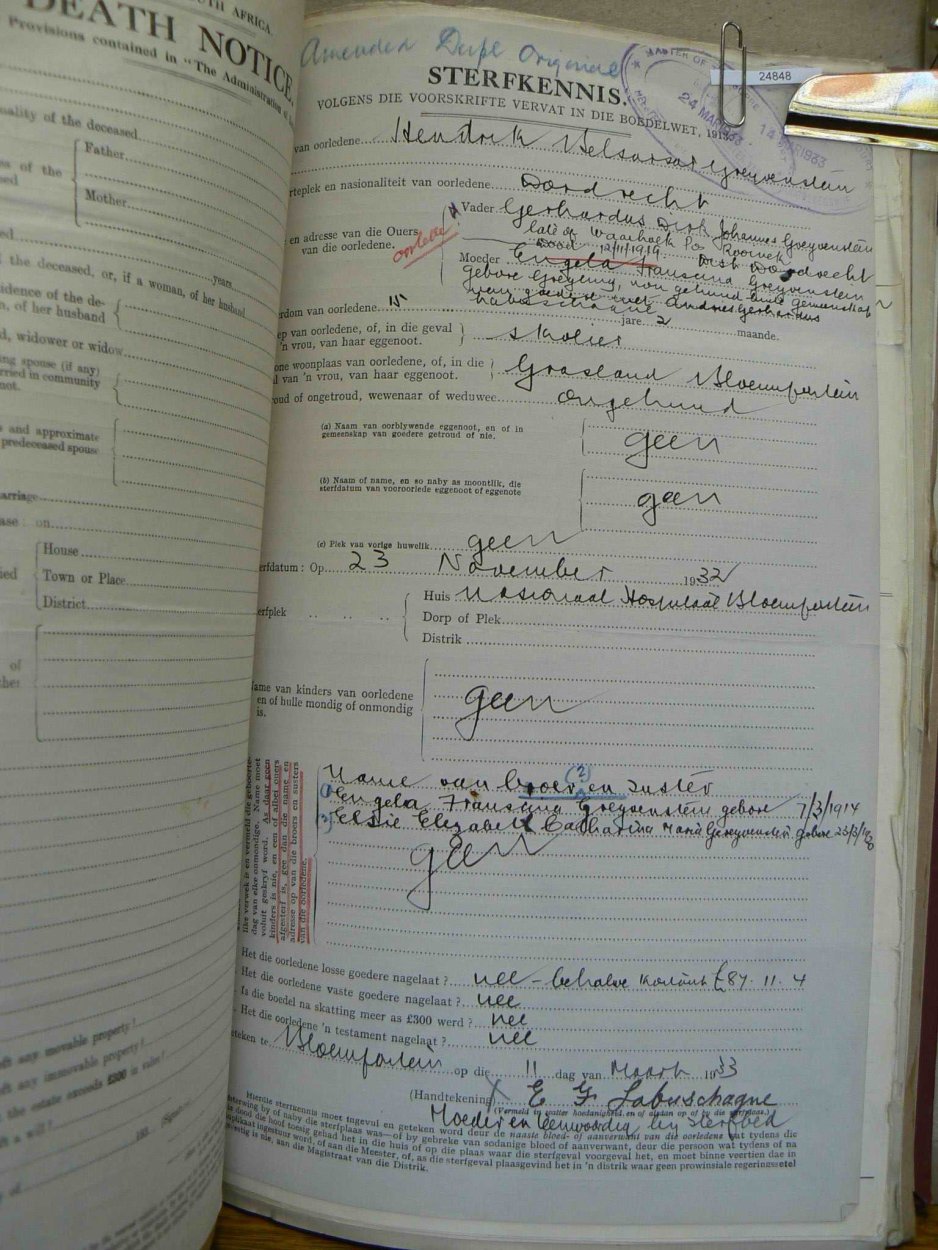 UTH AFRICA.
DEATH NOTICE.
Provisions contained in "The Administration of
nality of the deceased
Father
Mother
of the deceased, or, if a woman, of her husband
years
idence of the de-
n, of her husband
, widower or widow
ing spouse (if any)
rried in community
not.
s and approximate
predeceased spouse
arriage
ase on
House
Town or Place
District
ft any movable property?
ft any immovable property?
the estate exceeds £300 in value?
ft a will?
Amended Dupl Original
STERFKENNIS.
VOLGENS DIE VOORSKRIFTE VERVAT IN DIE BOEDELWET, 1913.
24848
MASTER OF
24 MAR 1933
14 1933
van oorledene Hendrik Belsasar Greyvenstein
rteplek en nasionaliteit van oorledene Dordrecht
en adresse van die Ouers
van die oorledene.
oorlede
Vader Gerhardus Dirk Johannes Greyvenstein
late of Waarhoek Po Rooinek
dood 12/11/1919 Dist Dordrecht
Moeder Engela Fransina Greyvenstein
gebore Greyling, nou getroud buite gemeenskap
van goedere met Andries Gerhardus
Labuschagne
rdom van oorledene 15 jare 2 maande.
ep van oorledene, of, in die geval
'n vrou, van haar eggenoot.
skolier
one woonplaas van oorledene, of, in die
l van 'n vrou, van haar eggenoot.
Grasland Bloemfontein
roud of ongetroud, wewenaar of weduwee ongetroud
(a) Naam van oorblywende eggenoot, en of in
gemeenskap van goedere getroud of nie.
geen
(b) Naam of name, en so naby as moontlik, die
sterfdatum van vooroorlede eggenoot of eggenote
geen
(c) Plek van vorige huwelik geen
erfdatum: Op 23 November 1932
erfplek
Huis Nasionaal Hospitaal Bloemfontein
Dorp of Plek
Distrik
ame van kinders van oorledene
en of hulle mondig of onmondig
is.
geen
like verwek is en vermeld die geboorte-
dag van elke onmondige. Name moet
voluit geskryf word. As daar geen
kinders is nie, en een of albei ouers
afgesterf is, gee dan die name en
adresse op van die broers en susters
van die oorledene.
Name van broer en suster
(2)
(1) Engela Fransina Greyvenstein gebore 7/3/1914
(3) Elsie Elizabeth Catharina Maria Greyvenstein gebore 23/3/1920
geen
Het die oorledene losse goedere nagelaat? nee – behalwe Kontant £87. 11. 4
Het die oorledene vaste goedere nagelaat? nee
Is die boedel na skatting meer as £300 werd? nee
Het die oorledene 'n testament nagelaat? nee
eteken te Bloemfontein op die 11 dag van Maart 1933
(Handtekening) E F Labuschagne
(Vermeld in watter hoedanigheid en of al dan op of by die sterfplaas.)
Moeder en teenwoordig by sterfbed
Hierdie sterfkennis moet ingevul en geteken word deur de naaste bloed- of aanverwant van die oorledene wat tydens die
sterwing by of naby die sterfplaas was—of by gebreke van sodanige bloed of aanverwant, deur die persoon wat tydens of na
die dood die hoof toesig gehad het in die huis of op die plaas waar die sterfgeval voorgeval het, en moet binne veertien dae in
duplikaat ingestuur word, of aan die Meester, of, as die sterfgeval plaasgevind het in 'n distrik waar geen provinsiale regeringssetel
gevestig is nie, aan die Magistraat van die Distrik.